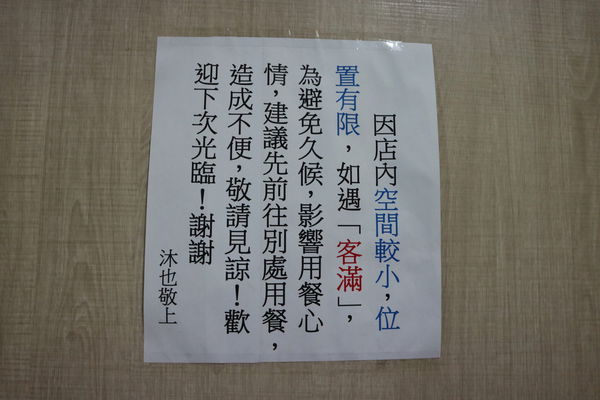 因店內空間較小，位
置有限，如遇「客滿」，
為避免久候，影響用餐心
情，建議先前往別處用餐，
造成不便，敬請見諒！歡
迎下次光臨！謝謝
沐也敬上